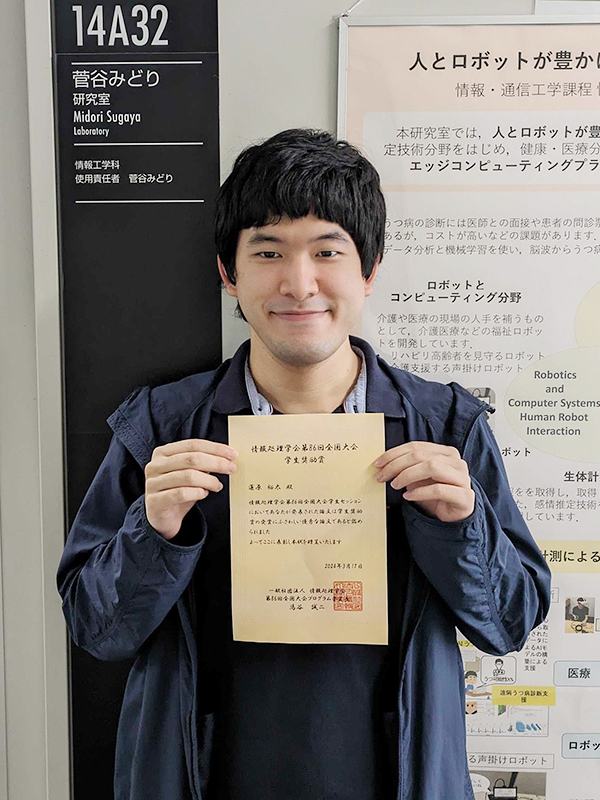 14A32
菅谷みどり
研究室
Midori Sugaya
Laboratory
情報工学科
使用責任者 菅谷みどり
人とロボットが豊か
情報・通信工学課程
本研究室では，人とロボットが豊
定技術分野をはじめ，健康・医療分
エッジコンピューティングプラ
うつ病の診断には医師との面接や患者の問診
あるが，コストが高いなどの課題があります．
データ分析と機械学習を使い，脳波からうつ病
ロボットと
コンピューティング分野
介護や医療の現場の人手を補うもの
として，介護医療などの福祉ロボッ
トを開発しています．
リハビリ高齢者を見守るロボット
介護支援する声掛けロボット
Robotics
and
Computer Systems
Human Robot
Interaction
ボット
生体計
を取得し，取得
た，感情推定技術を
しています．
計測による
情報処理学会第86回全国大会
学生奨励賞
蓮原 裕太 殿
情報処理学会第86回全国大会学生セッション
においてあなたが発表された論文は学生奨励
賞の受賞にふさわしい優秀な論文であると認め
られました
よってここに表彰し本状を贈呈いたします
2024年3月17日
一般社団法人 情報処理学会
第86回全国大会プログラム委員長
データに
よるAIモ
デルの構
築による
支援
医療
波問うつ病診断支
援
ロボッ
る声掛けロボット